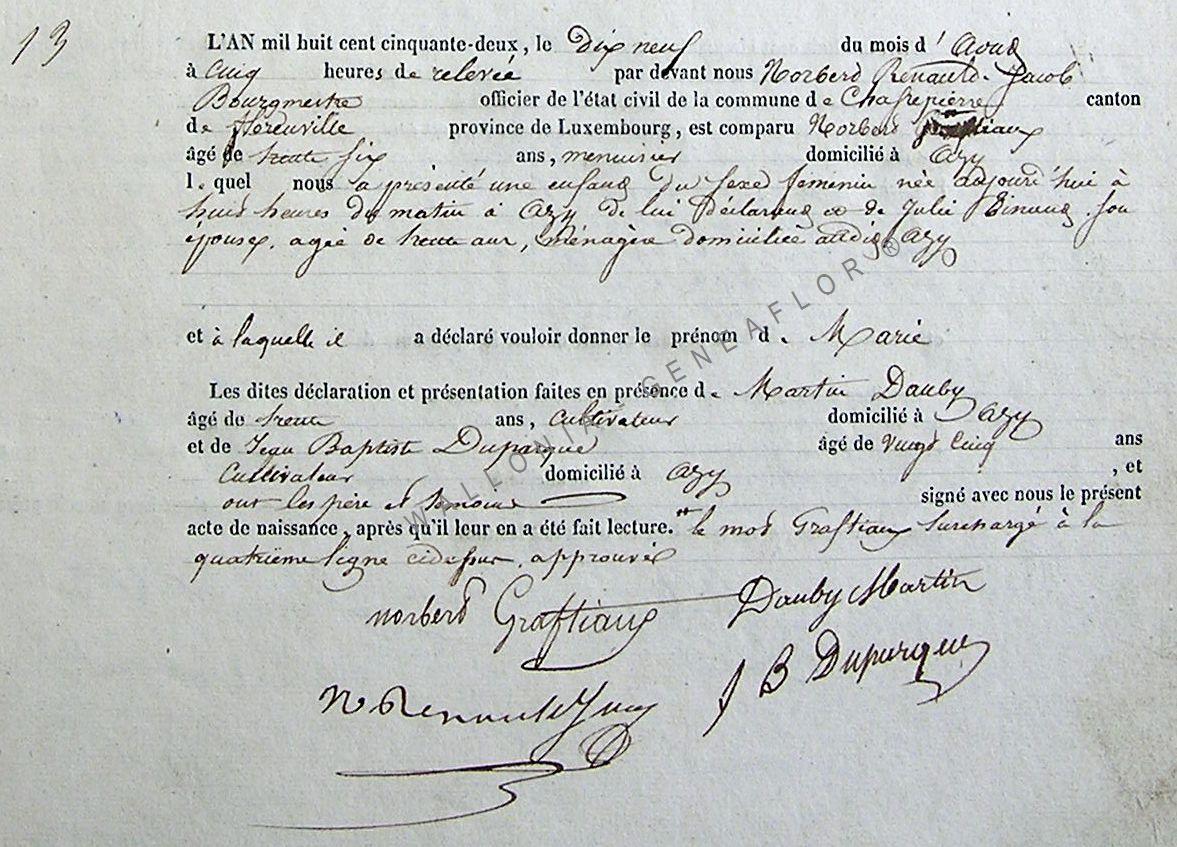 13
L'AN mil huit cent cinquante-deux, le dix neuf du mois d' Aout
à cinq heures de relevée par devant nous Norbert Renauld. Jacob
Bourgmestre officier de l'état civil de la commune de Chassepierre, canton
de florenville province de Luxembourg, est comparu Norbert
âgé de trente six ans, menuisier domicilié à Azy
le quel nous a présenté une enfant du sexe feminin née aujourd'hui à
huit heures du matin à Azy de lui déclarant et de Julie son
épouse, agée de trente ans, ménagère domiciliée audit Azy
et à laquelle il a déclaré vouloir donner le prénom de Marie
Les dites déclaration et présentation faites en présence de Martin Dauby
âgé de trente ans, cultivateur domicilié à Azy
et de Jean Baptiste Duparque âgé de vingt cinq ans
cultivateur domicilié à Azy , et
ont les père et temoins signé avec nous le présent
acte de naissance, après qu'il leur en a été fait lecture. le mot Graftiaux surchargé à la
quatrième ligne cidessus, approuvé
norbert Graftiaux Dauby Martin
J B Duparque
N Renauld Jacob
WALLONIE GENEAFLOR ®